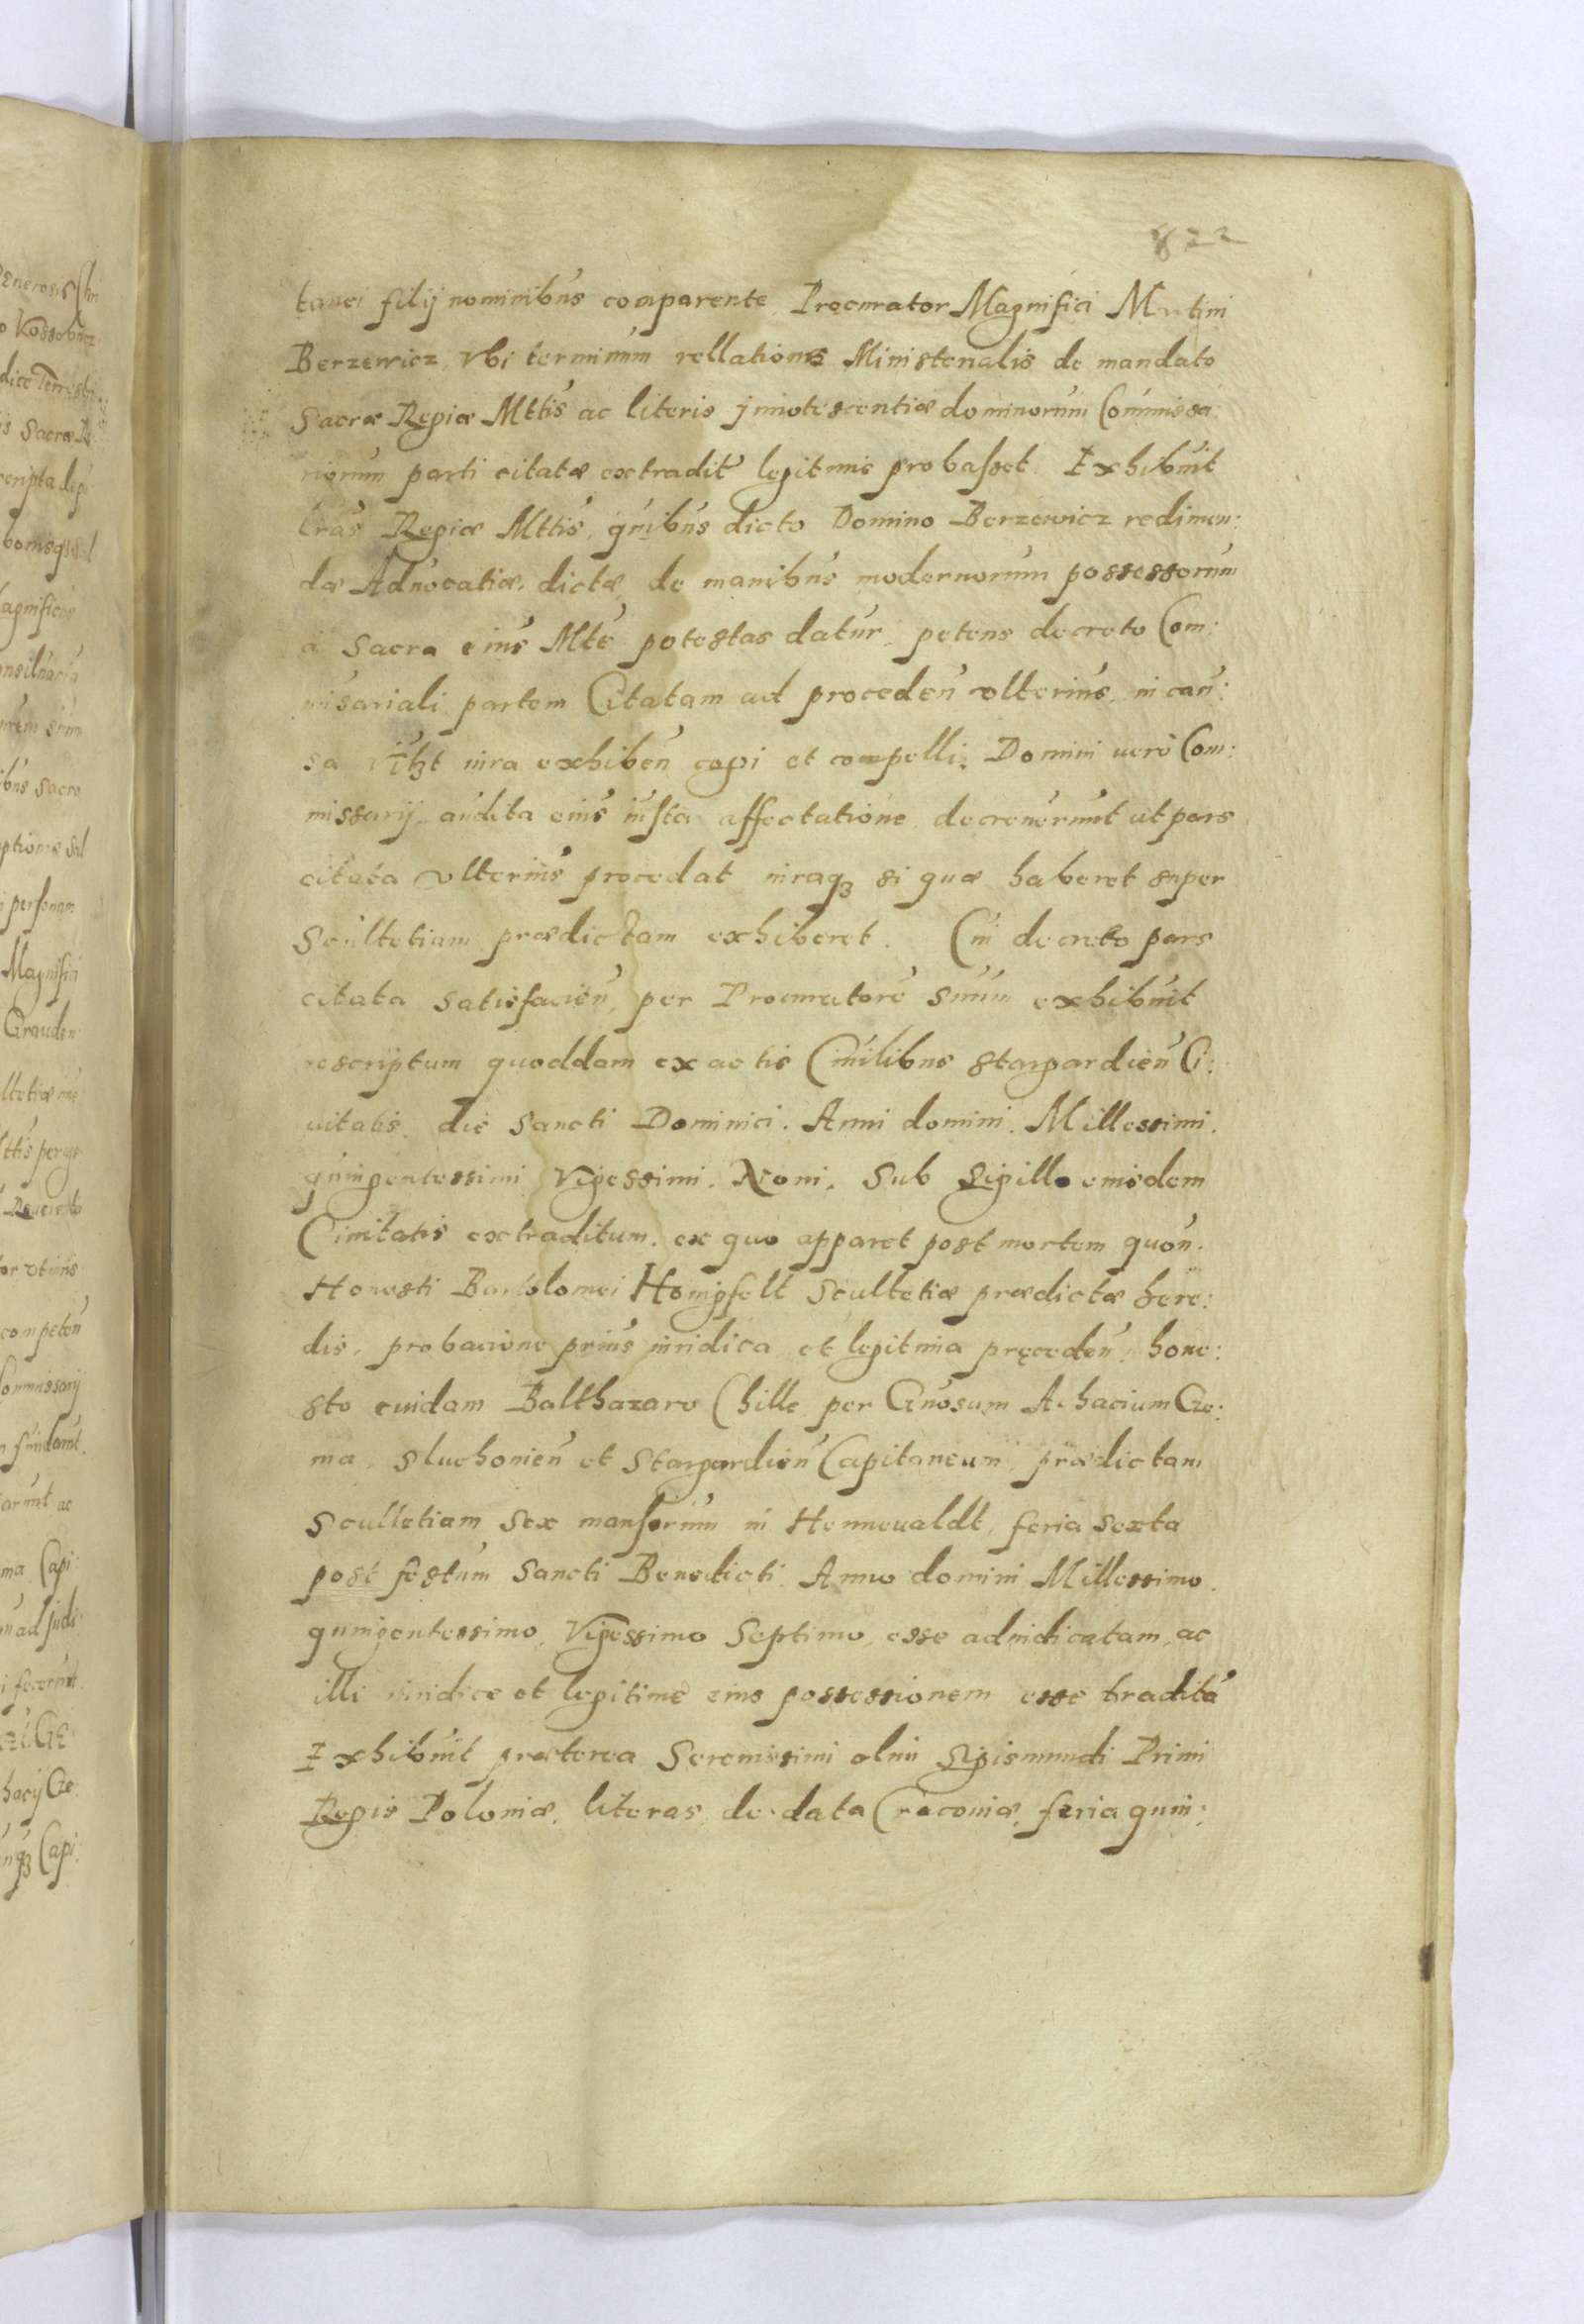 822
tanei filij nominibus comparente Procurator Magnifici Martini
Berzewicz, vbi terminum rellationis Ministerialis de mandato
Sacræ Regiæ Mttis ac literis jnnotescentiæ dominorum Commissa:
riorum parti citatæ extradit legitime probasset. Exhibuit
lras Regiæ Mttis, quibus dicto Domino Berzewicz redimen:
dæ Aduocatiæ, dictæ, de manibus modernorum possessorum
à Sacra eius Mte potestas datur, petens decreto Com:
misariali partem Citatam ad proceden vlterius, in cau:
sa vtzt iura exhiben cogi et compelli. Domini uerò Com:
missarij, audita eius iusta affectatione, decreuerunt ut pars
citata vlterius procedat iuraqz si quæ haberet super
Scultetiam prædictam exhiberet. Cui decreto pars
citata satisfacien, per Procuratorē suum exhibuit
rescriptum quoddam ex actis Ciuilibus stargardien Ci:
uitatis, die Sancti Dominici. Anni domini. Millessimi.
quingentessimi Vigessimi. Noni. Sub Sigillo eiusdem
Ciuitatis extraditum. ex quo apparet post mortem quon.
Honesti Bartolomei Honigfelt Scultetiæ prædictæ here:
dis, probacione prius iuridica et legitima pręceden, hone:
sto cuidam Balthazaro Chille per Gnosum Achacium Ge:
ma, sluchonien et Stargardien Capitaneum, prædictam
Scultetiam Sex mansorum in Henneualdt, feria sexta
post festum Sancti Benedicti Anno domini Millessimo
quingentessimo, Vigessimo Septimo, esse adiudicatam, ac
illi iuridice et legitimè eius possessionem esse traditā
Exhibuit præterea Serenissimi olim Sigismundi Primi
Regis Poloniæ, literas, de data Cracouiæ, feria quin: